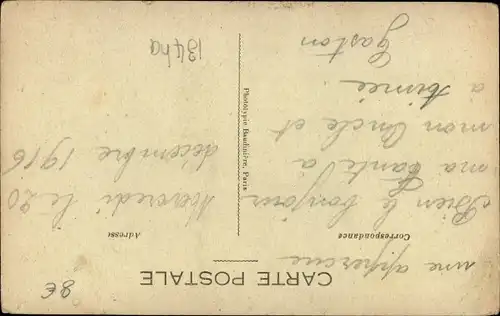 CARTE POSTALE
Correspondance
Adresse
une
Bien le bonjour
ma tante à
mon Oncle et
a
Gaston
Mecredi le 20
décembre 1916
Phototypie Baudinière, Paris
134ha
8€